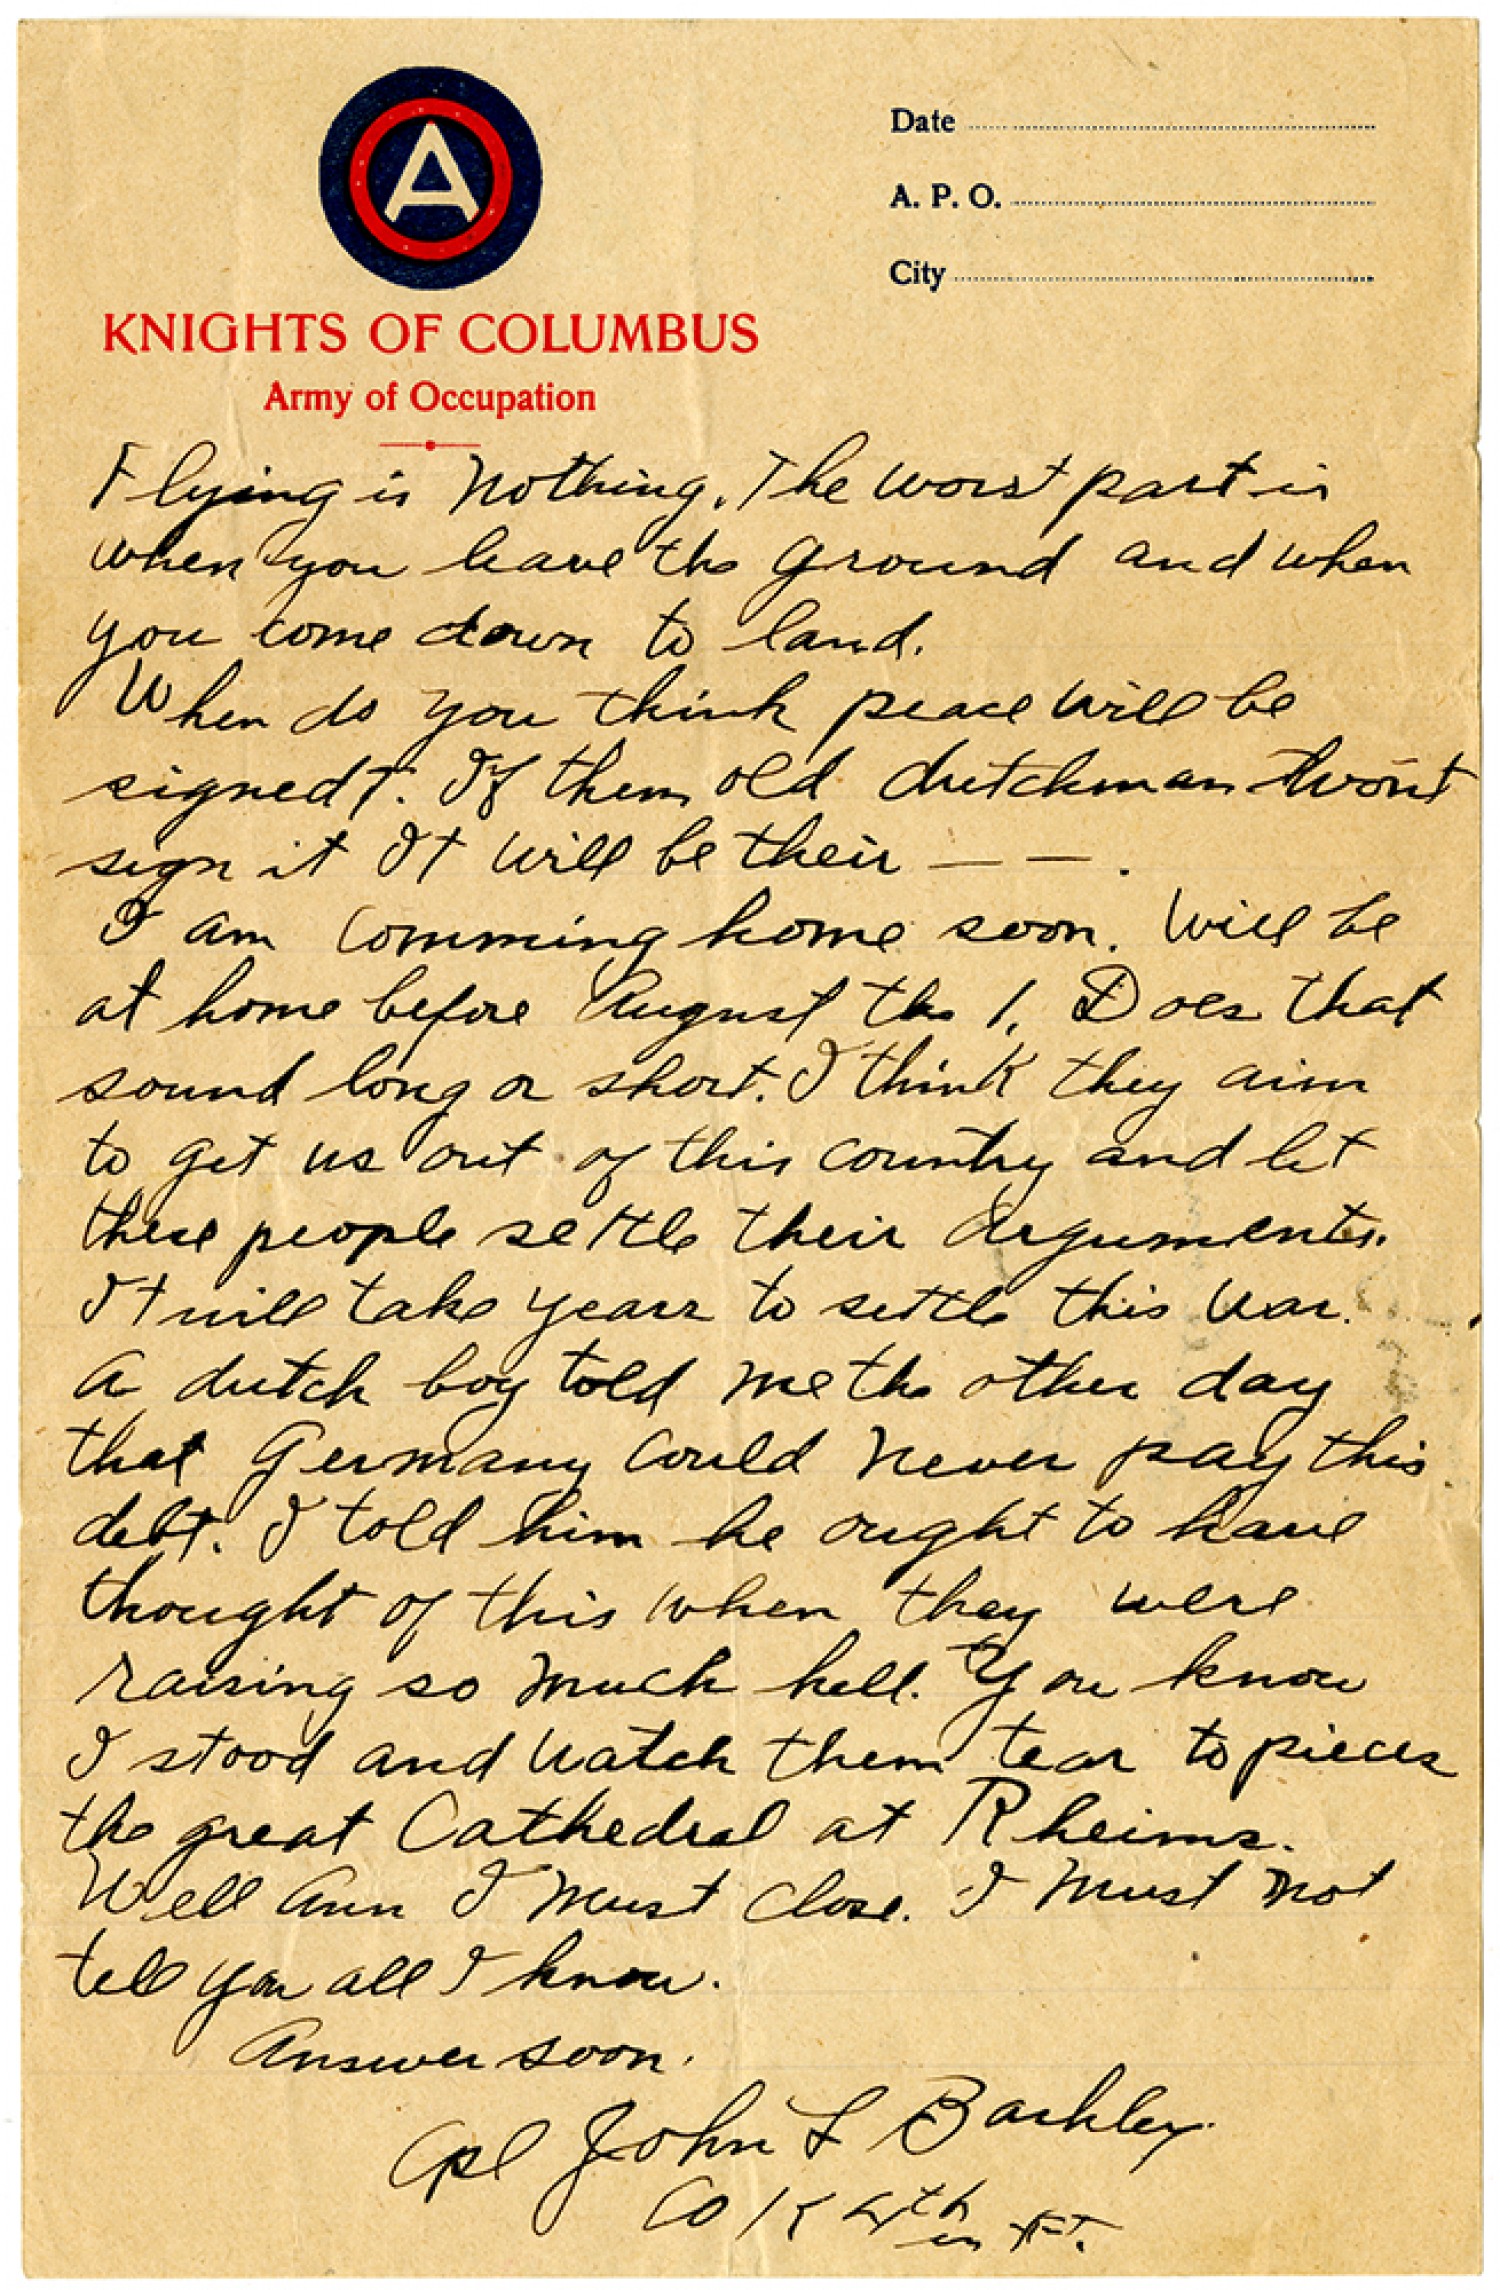 A
Date
A. P. O.
City
KNIGHTS OF COLUMBUS
Army of Occupation
Flying is nothing. The worst part is
when you leave the ground and when
you come down to land.
When do you think peace will be
signed?. If them old dutchman won't
sign it It will be their — — .
I am comming home soon. Will be
at home before August the 1. Does that
sound long or short. I think they aim
to get us out of this country and let
these people settle their arguments.
It will take years to settle this war.
A dutch boy told me the other day
that Germany could never pay this
debt. I told him he ought to have
thought of this when they were
raising so much hell. You know
I stood and watch them tear to pieces
the great Cathedral at Rheims.
Well Ann I must close. I must not
tell you all I know.
Answer soon.
Cpl John L Barkley
Co K 4th inft.